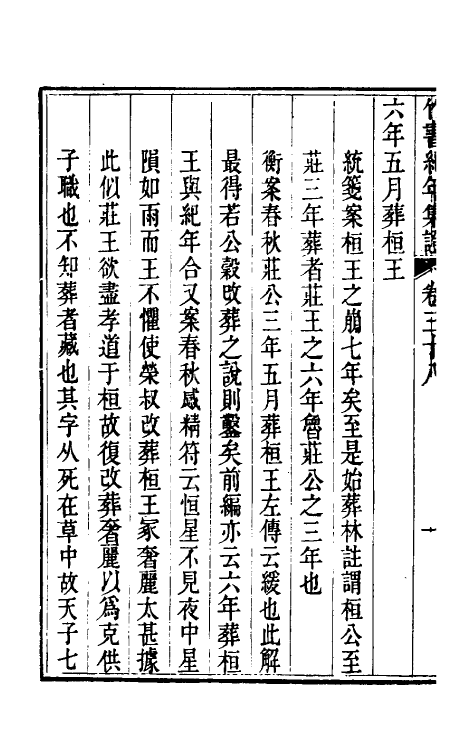 竹書紀年集證 卷三十八
六年五月葬桓王
統箋案桓王之崩七年矣至是始葬林註謂桓公至
莊三年葬者莊王之六年魯莊公之三年也
衡案春秋莊公三年五月葬桓王左傳云緩也此解
最得若公縠改葬之說則鑿矣前編亦云六年葬桓
王與紀年合又案春秋感精符云恒星不見夜中星
隕如雨而王不懼使榮叔改葬桓王冢奢麗太甚據
此似莊王欲盡孝道于桓故復改葬奢麗以爲克供
子職也不知葬者藏也其字从死在草中故天子七